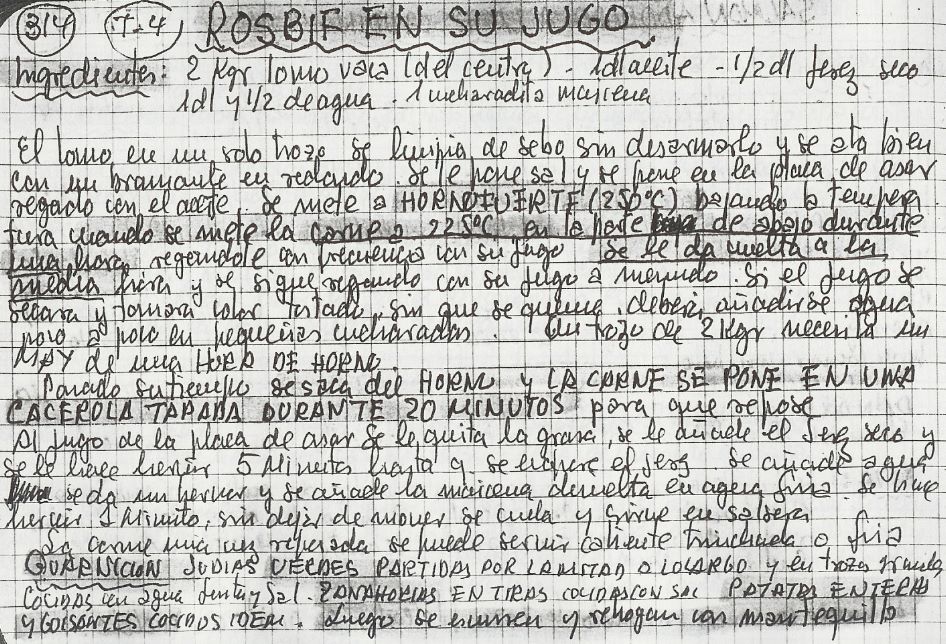 314 T-4 ROSBIF EN SU JUGO
Ingredientes: 2 Kgr lomo vaca (del centro) - 1dl aceite - 1/2 dl jerez seco
1dl y 1/2 de agua - 1 cucharadita maicena
El lomo, en un solo trozo se limpia de sebo sin desarmarlo y se ata bien
con un bramante en redondo. Se le pone sal y se pone en la placa de asar
regado con el aceite. Se mete a HORNO FUERTE (250ºC) bajando la tempera
tura cuando se mete la carne a 225ºC en la parte de abajo durante
una hora regandole con frecuencia con su jugo Se le da vuelta a la
media hora y se sigue regando con su jugo a menudo. Si el jugo se
secara y tomara color tostado, sin que se queme, deberá añadirse agua
poco a poco en pequeñas cucharadas. Un trozo de 2 Kgr necesita un
MAX de una HORA DE HORNO.
Pasado su tiempo se saca del HORNO y LA CARNE SE PONE EN UNA
CACEROLA TAPADA DURANTE 20 MINUTOS para que repose
Al jugo de la placa de asar se le quita la grasa, se le añade el Jerez seco y
se le hace hervir 5 Minutos hasta q. se evapore el jerez Se añade agua
se da un hervor y se añade la maicena devuelta en agua fria. Se hace
hervir 1 Minuto, sin dejar de mover se cuela y sirve en salsera
La carne una vez reposada se puede servir caliente trinchada o fria
GUARNICION JUDIAS VERDES PARTIDAS POR LA MITAD A LO LARGO y en trozos grandes
COCIDAS en agua y Sal. ZANAHORIAS EN TIRAS COCIDAS CON SAL PATATAS ENTERAS
Y GUISANTES COCIDOS IDEM. Luego se unen y rehogan con mantequilla